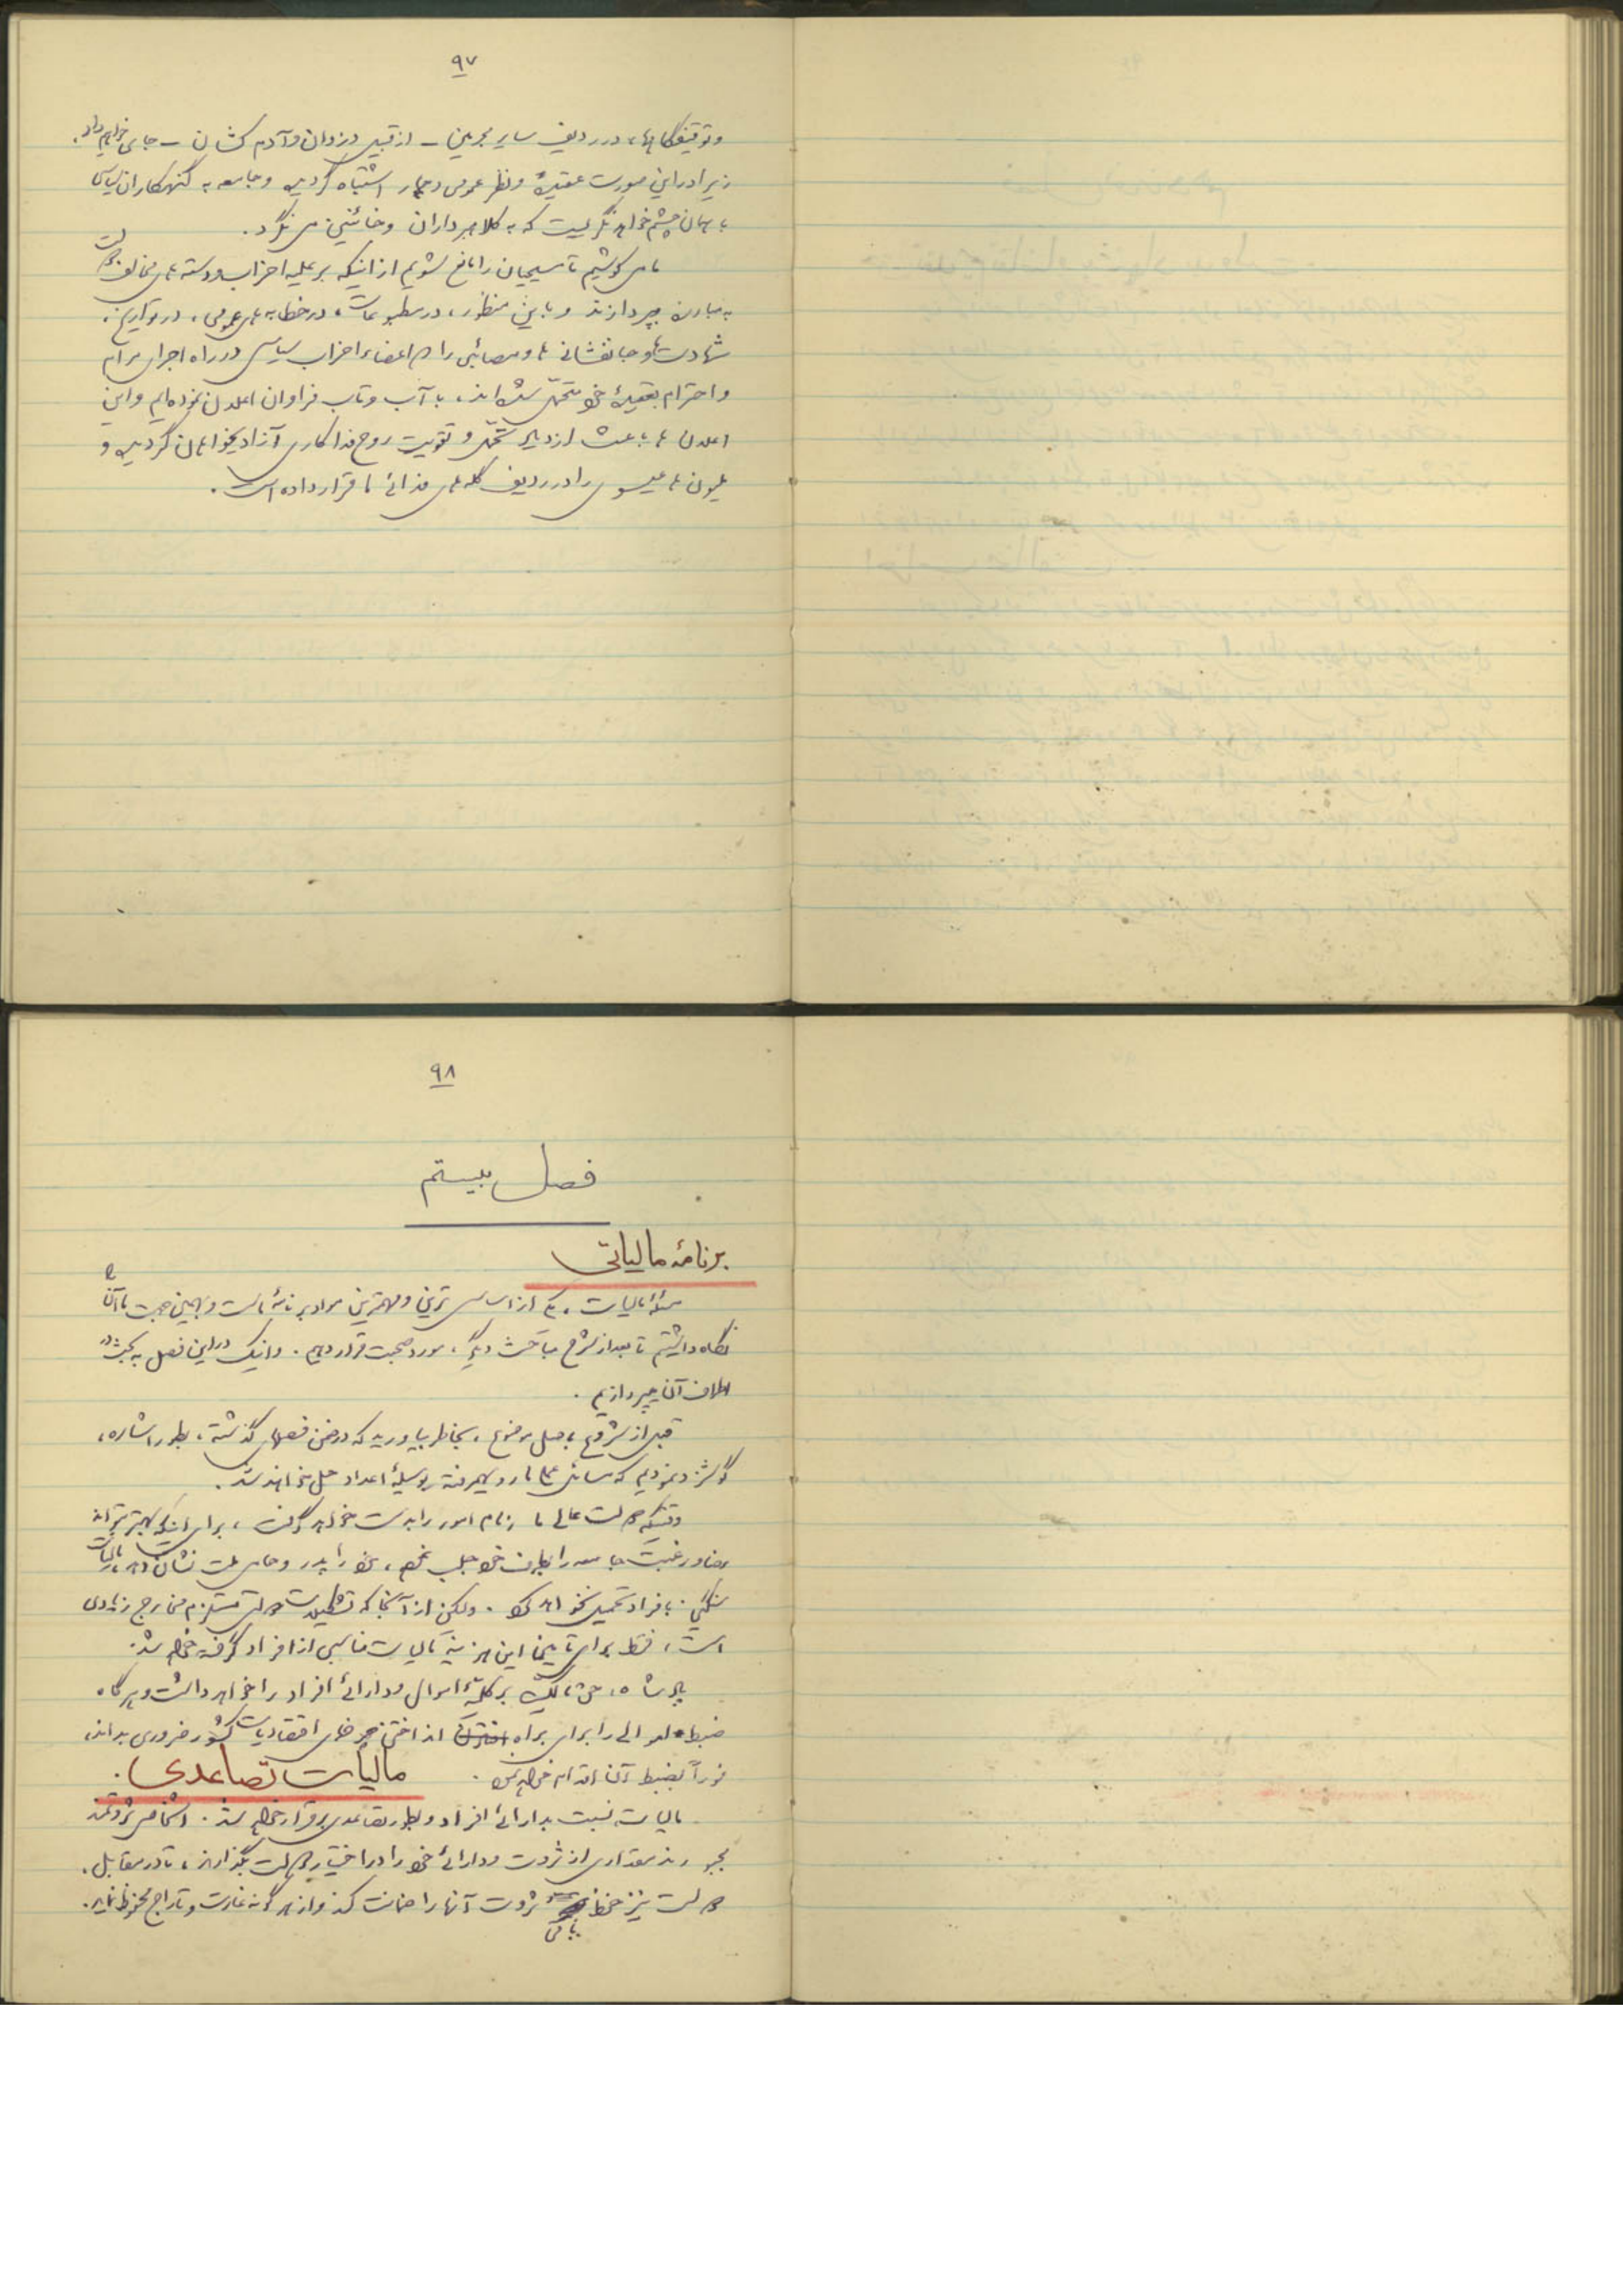 ۹۷
و توقیفگاهها، در ردیف سایر مجرمین ـ از قبیل دزدان و آدم کشان ـ جای خواهیم داد.
زیرا در این صورت عقیدهٔ و نظر عمومی دچار اشتباه گردیده و جامعه به گنهکاران سیاسی
با همان چشم خواهد نگریست که به کلاهبرداران و خائنین می نگرد.
ما می کوشیم تا مسیحیان را مانع شویم از اینکه بر علیه احزاب و دسته های مخالف دولت
به مبارزه بپردازند و باین منظور، در مطبوعات، در خطابه های عمومی، در تواریخ،
شهادت ها و جانفشانی ها و مصائبی را که اعضاء احزاب سیاسی در راه اجرای مرام
و احترام بعقیدهٔ خود متحمّل شده اند، با آب و تاب فراوان اعلان نموده ایم و این
اعلان ها باعث ازدیاد تحمّل و تقویت روح فداکاری آزادیخواهان گردیده و
ملیون ها عیسوی را در ردیف گله های فدائی ما قرار داده است.
۹۸
فصل بیستم
برنامهٔ مالیاتی
مسئلهٔ مالیات، یکی از اساسی ترین و مهمترین مواد برنامهٔ ماست و بهمین جهت ما آنرا
نگاه داشتیم تا بعد از شرح مباحث دیگر، مورد صحبت قرار دهیم. و اینک در این فصل به بحث در
اطراف آن بپردازیم.
قبل از شروع باصل موضوع، بخاطر بیاورید که در ضمن فصلهای گذشته، بطور اشاره،
گوشزد نمودیم که مسائل عملی ما رویهمرفته بوسیلهٔ اعداد حل خواهند شد.
وقتیکه دولت عالی ما زمام امور را بدست خواهد گرفت، برای اینکه بهتر بتواند
رضا و رغبت جامعه را بطرف خود جلب نموده، خود را پدر و حامی ملت نشان دهد، مالیات
سنگینی بافراد تحمیل نخواهد کرد. ولیکن از آنجا که تشکیلات دولتی مستلزم مخارج زیادی
است، فقط برای تأمین این هزینه مالیات مناسبی از افراد گرفته خواهد شد.
پادشاه، حق تملّک بر کلیّهٔ اموال و دارائی افراد را خواهد داشت و هرگاه
ضبط اموالی را برای براه انداختن چرخهای اقتصادیات کشور ضروری بداند،
فوراً بضبط آن اقدام خواهد نمود.
مالیات تصاعدی.
مالیات نسبت بدارائی افراد و بطور تصاعدی برقرار خواهد شد. اشخاص ثروتمند
مجبورند مقداری از ثروت و دارائی خود را در اختیار دولت بگذارند، تا در مقابل،
دولت نیز حفظ باقی ثروت آنها را ضمانت کند و از هرگونه غارت و تاراج محفوظ نماید.